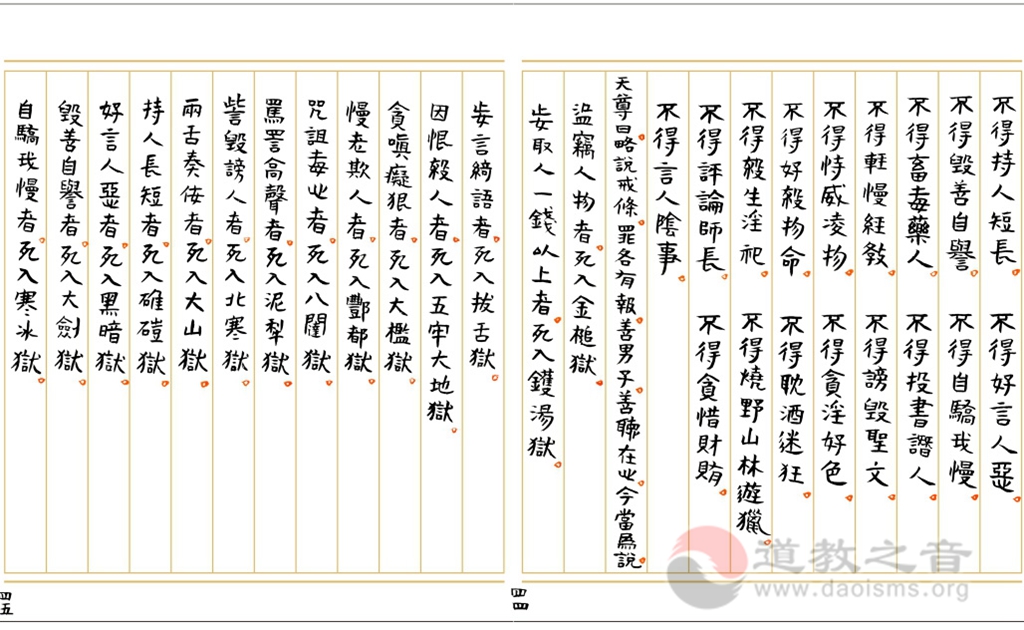 不得持人短長。 不得好言人惡。
不得毀善自譽。 不得自驕我慢。
不得畜毒藥人。 不得投書譖人。
不得輕慢經敎。 不得謗毀聖文。
不得恃威凌物。 不得貪淫好色。
不得好殺物命。 不得耽酒迷狂。
不得殺生淫祀。 不得燒野山林遊獵。
不得評論師長。 不得貪惜財賄。
不得言人陰事。
天尊曰。略說戒條。罪各有報。善男子。善聽在心。今當為說。
盜竊人物者。死入金槌獄。
妄取人一錢以上者。死入鑊湯獄。
四四
妄言綺語者。死入拔舌獄。
因恨殺人者。死入五牢大地獄。
貪嗔癡狠者。死入大檻獄。
慢老欺人者。死入酆都獄。
咒詛毒心者。死入八闈獄。
罵詈高聲者。死入泥犁獄。
訾毀謗人者。死入北寒獄。
兩舌奏佞者。死入大山獄。
持人長短者。死入碓磑獄。
好言人惡者。死入黑暗獄。
毀善自譽者。死入大劍獄。
自驕我慢者。死入寒冰獄。
四五
道教之音
www.daoisms.org